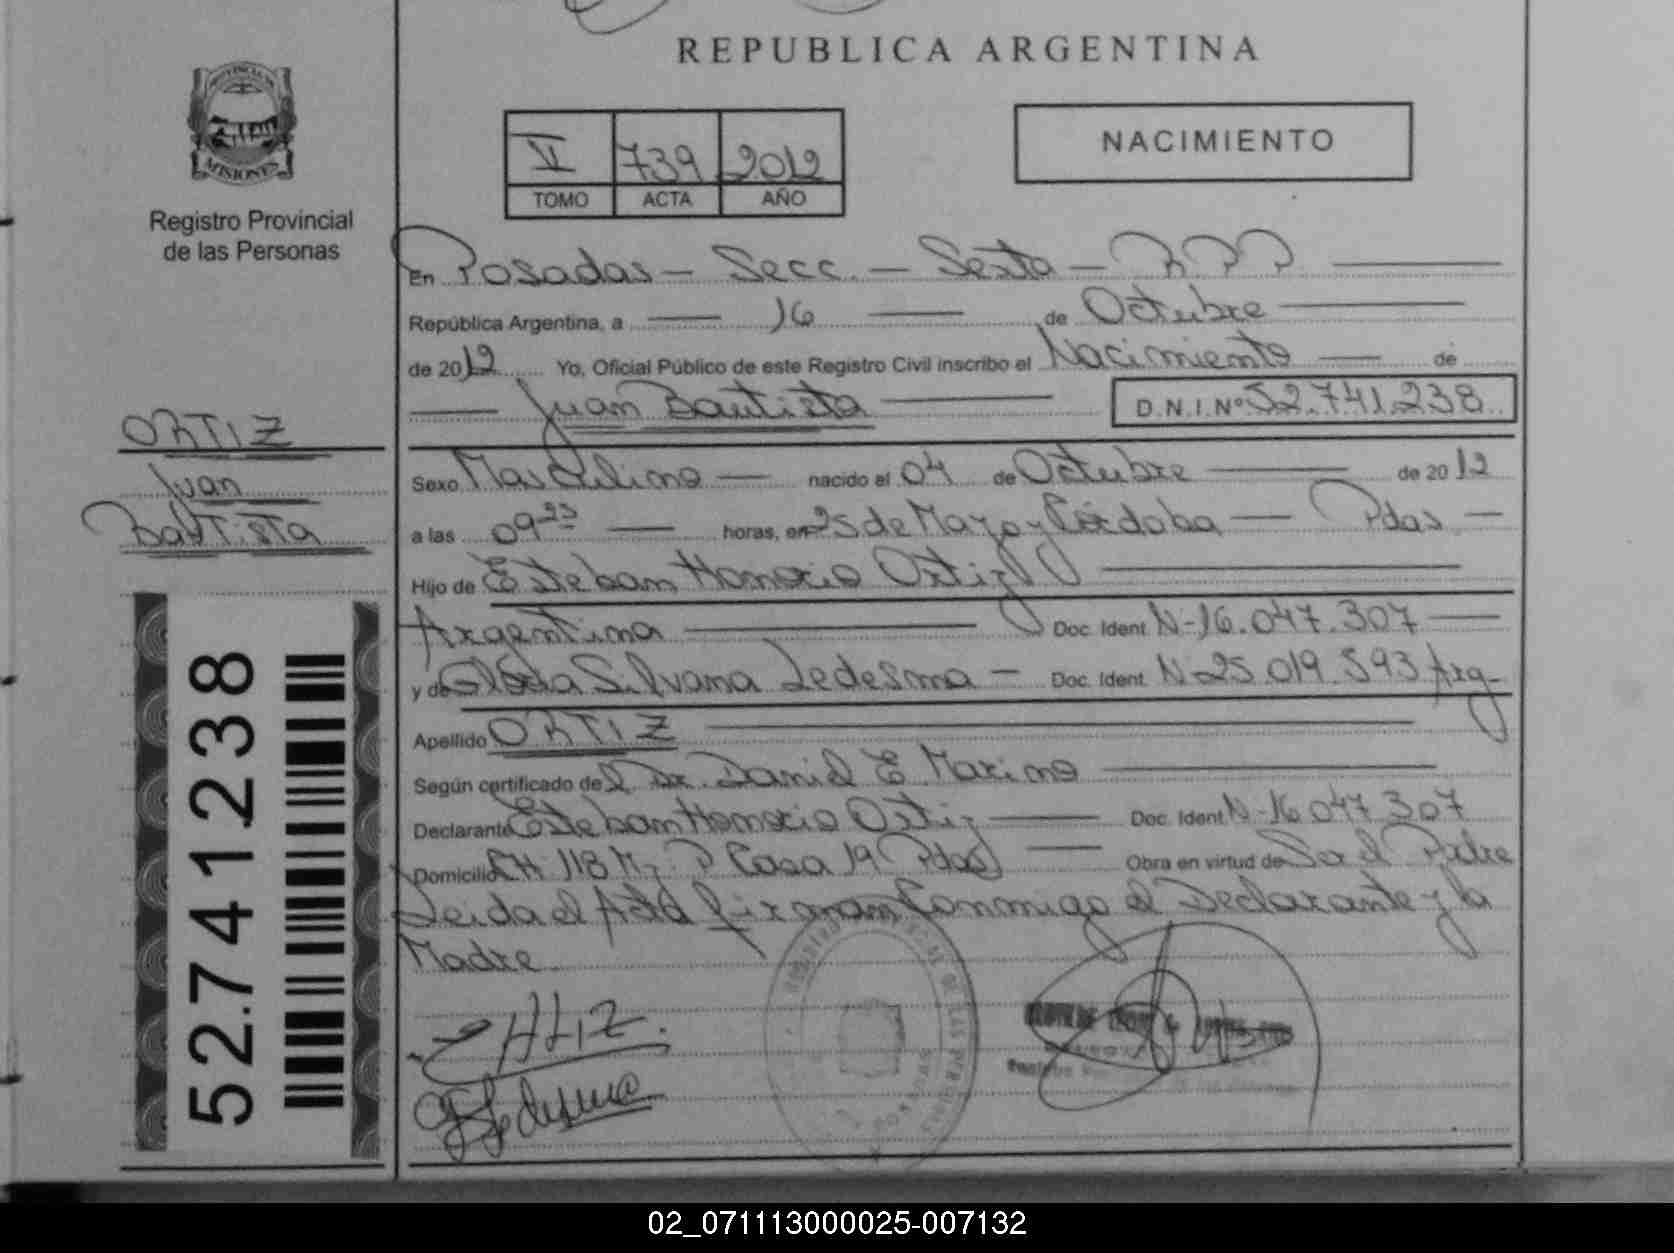 REPUBLICA ARGENTINA
PROVINCIA DE
MISIONES
Registro Provincial
de las Personas
VI 739 2012
TOMO ACTA AÑO
NACIMIENTO
En Posadas - Secc. - Sexta - RPP.
República Argentina, a 16 de Octubre
de 2012 Yo, Oficial Público de este Registro Civil inscribo el Nacimiento de
Juan Bautista D.N.I.Nº 52.741.238
ORTIZ
Juan
Bautista
Sexo Masculino nacido el 04 de Octubre de 2012
a las 09 25 horas, en 25 de Mayo y Córdoba - Pdas -
Hijo de Esteban Honorio Ortiz
Argentina Doc. Ident N-16.047.307
y de Gloria Silvana Ledesma - Doc. Ident. N-25.019.593 Arg-
Apellido ORTIZ
Según certificado del Dr. Daniel E Marino
Declarante Esteban Honorio Ortiz Doc. Ident. N-16.047.307
Domicilio CH: 118 Mz P Casa 19 Pdas Obra en virtud de Ser el Padre
Leida el Acta firman Conmigo el Declarante y la
Madre
Ortiz.
G Ledesma
52.741.238
02_071113000025-007132